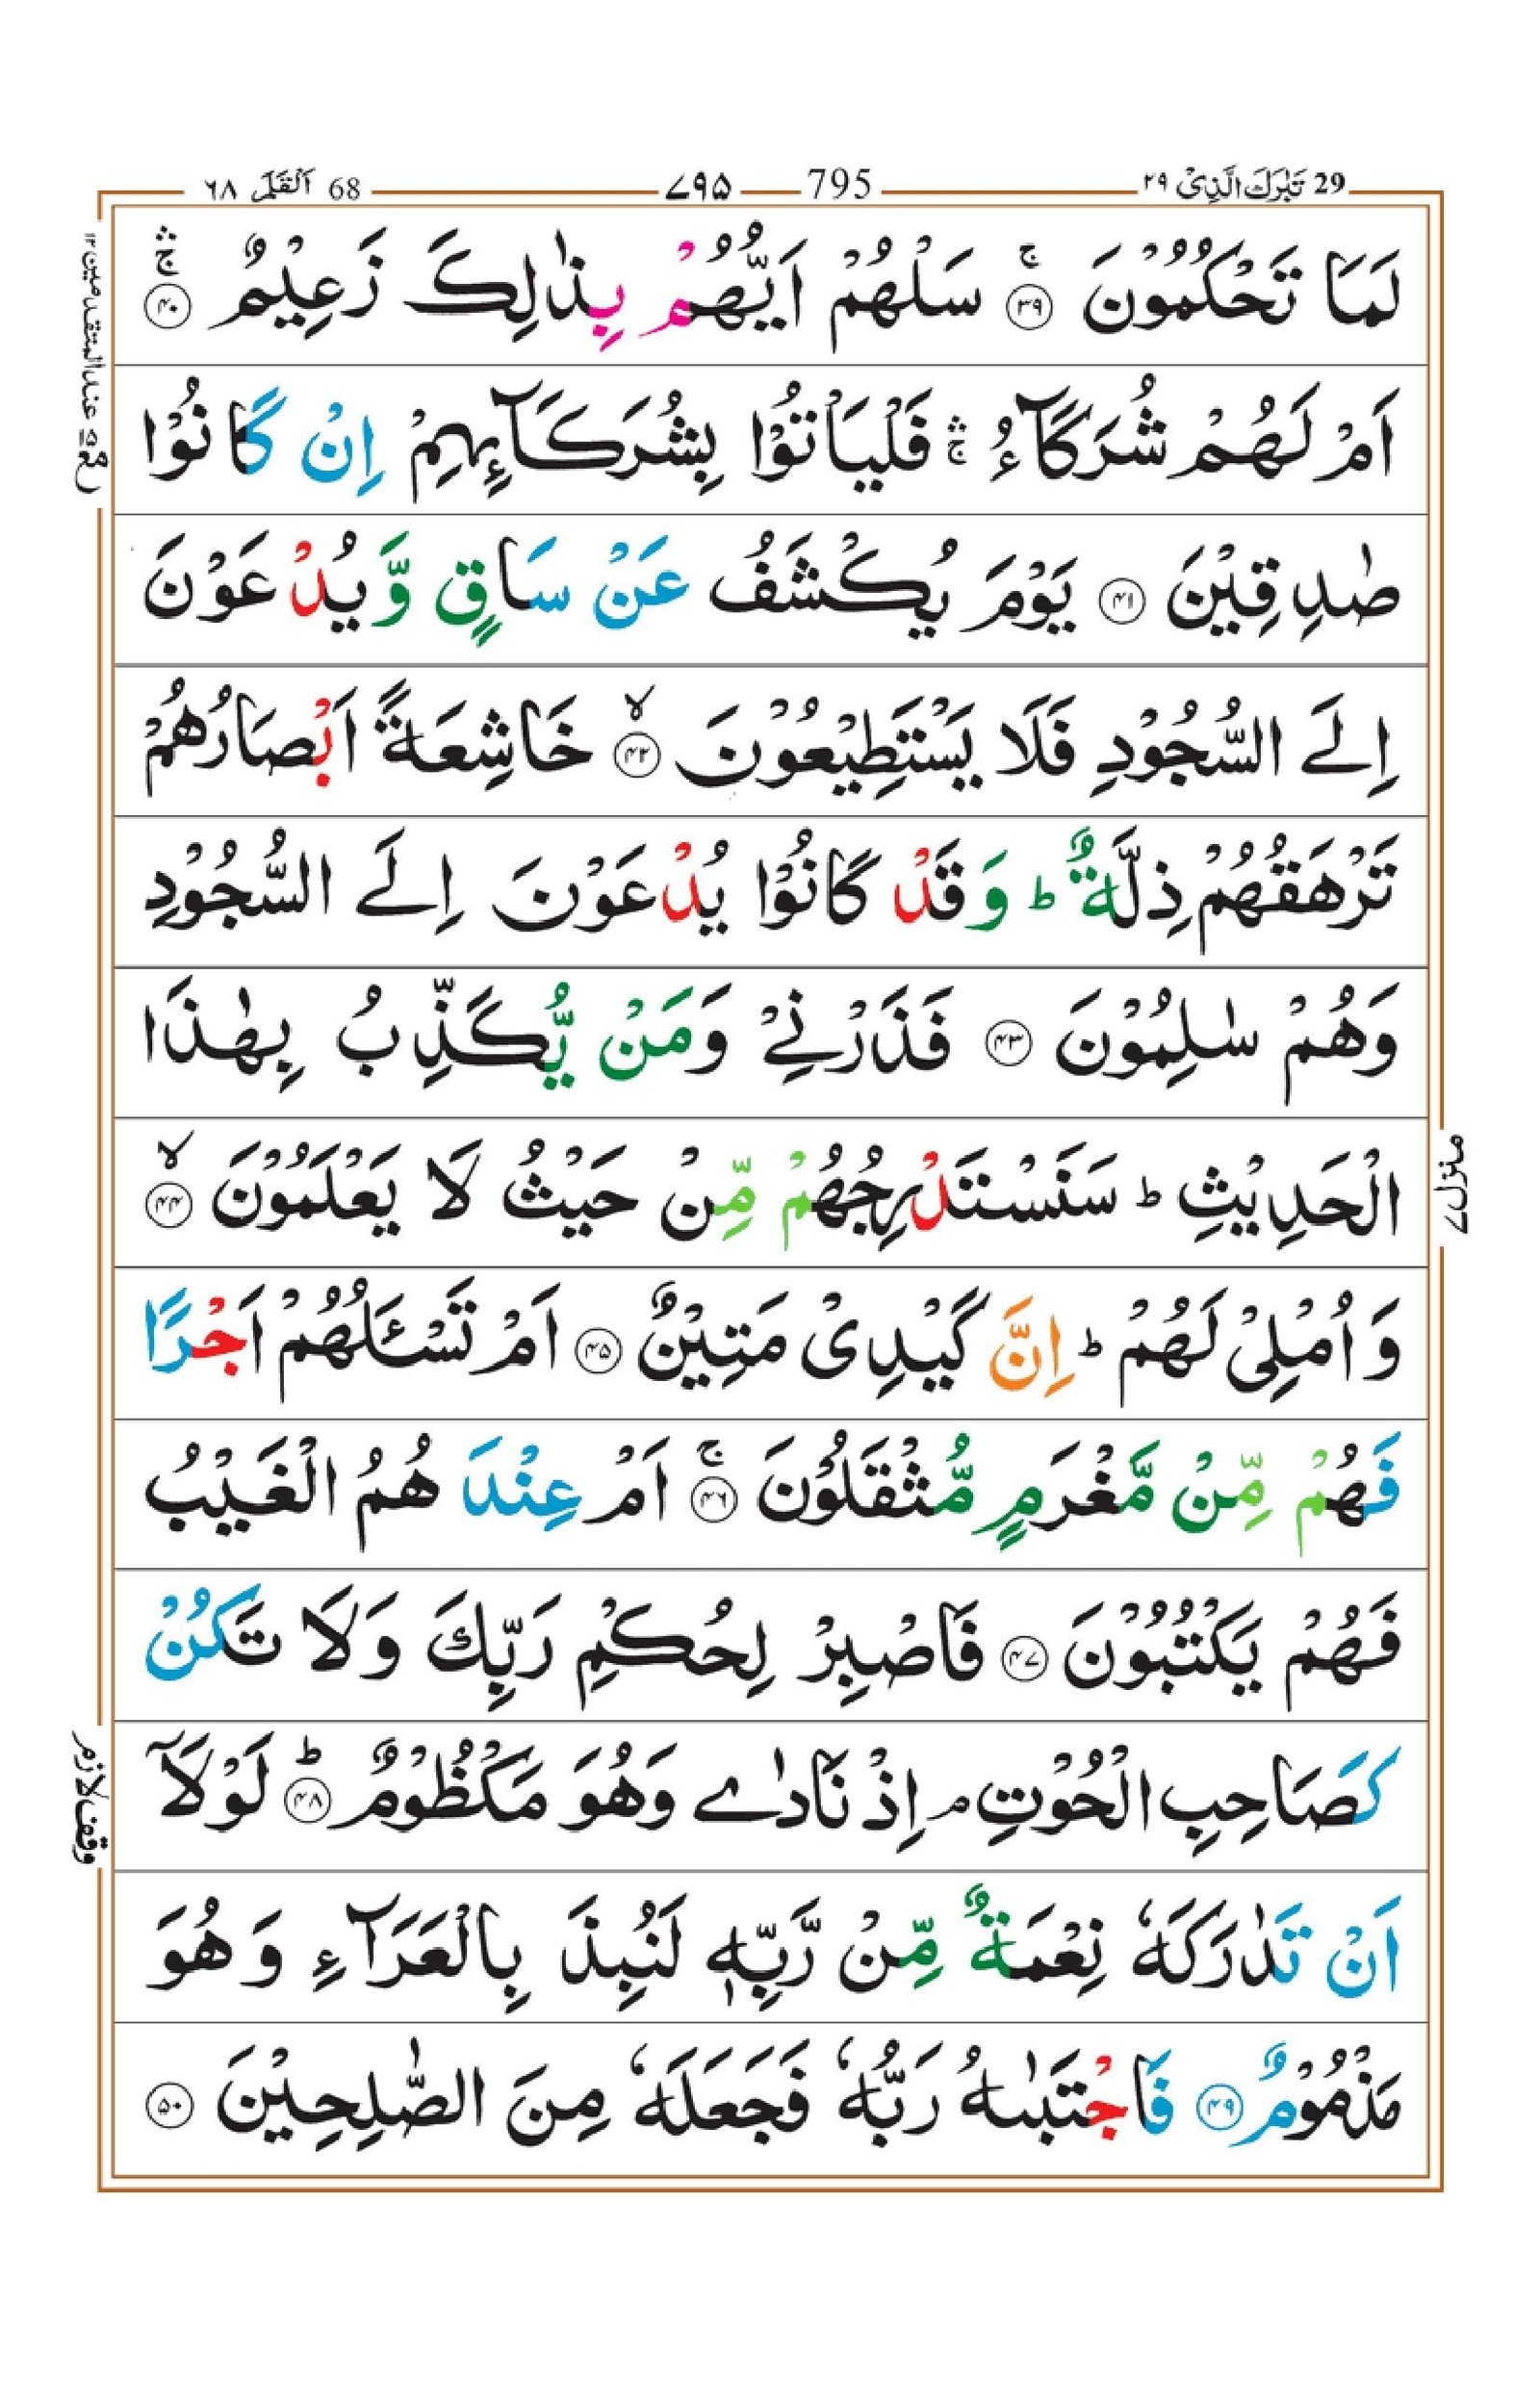 29 تَبٰرَكَ الَّذِیْ ۲۹ 795 ۷۹۵ 68 اَلْقَلَم ۶۸
لَمَا تَحْكُمُوْنَ ۚ ۳۹ سَلْهُمْ اَیُّهُمْ بِذٰلِكَ زَعِیْمٌ ۛۚ ۴۰
اَمْ لَهُمْ شُرَكَآءُ ۛۚ فَلْیَاْتُوْا بِشُرَكَآئِهِمْ اِنْ كَانُوْا
صٰدِقِیْنَ ۴۱ یَوْمَ یُكْشَفُ عَنْ سَاقٍ وَّیُدْعَوْنَ
اِلَے السُّجُوْدِ فَلَا یَسْتَطِیْعُوْنَ ۙ ۴۲ خَاشِعَةً اَبْصَارُهُمْ
تَرْهَقُهُمْ ذِلَّةٌ ؕ وَقَدْ كَانُوْا یُدْعَوْنَ اِلَے السُّجُوْدِ
وَهُمْ سٰلِمُوْنَ ۴۳ فَذَرْنِیْ وَمَنْ یُّكَذِّبُ بِهٰذَا
الْحَدِیْثِ ؕ سَنَسْتَدْرِجُهُمْ مِّنْ حَیْثُ لَا یَعْلَمُوْنَ ۙ ۴۴
وَاُمْلِیْ لَهُمْ ؕ اِنَّ كَیْدِیْ مَتِیْنٌ ۴۵ اَمْ تَسْـَٔلُهُمْ اَجْرًا
فَهُمْ مِّنْ مَّغْرَمٍ مُّثْقَلُوْنَ ۚ ۴۶ اَمْ عِنْدَ هُمُ الْغَیْبُ
فَهُمْ یَكْتُبُوْنَ ۴۷ فَاصْبِرْ لِحُكْمِ رَبِّكَ وَلَا تَكُنْ
كَصَاحِبِ الْحُوْتِ ۘ اِذْ نَادٰے وَهُوَ مَكْظُوْمٌ ؕ ۴۸ لَوْلَاۤ
اَنْ تَدٰرَكَهٗ نِعْمَةٌ مِّنْ رَّبِّهٖ لَنُبِذَ بِالْعَرَآءِ وَهُوَ
مَذْمُوْمٌ ۴۹ فَاجْتَبٰىهُ رَبُّهٗ فَجَعَلَهٗ مِنَ الصّٰلِحِیْنَ ۵۰
منزل ۷
وقف لازم